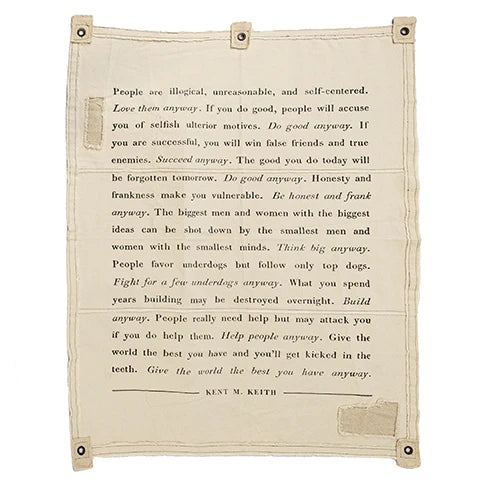 People are illogical, unreasonable, and self-centered.
Love them anyway. If you do good, people will accuse
you of selfish ulterior motives. Do good anyway. If
you are successful, you will win false friends and true
enemies. Succeed anyway. The good you do today will
be forgotten tomorrow. Do good anyway. Honesty and
frankness make you vulnerable. Be honest and frank
anyway. The biggest men and women with the biggest
ideas can be shot down by the smallest men and
women with the smallest minds. Think big anyway.
People favor underdogs but follow only top dogs.
Fight for a few underdogs anyway. What you spend
years building may be destroyed overnight. Build
anyway. People really need help but may attack you
if you do help them. Help people anyway. Give the
world the best you have and you'll get kicked in the
teeth. Give the world the best you have anyway.
KENT M. KEITH